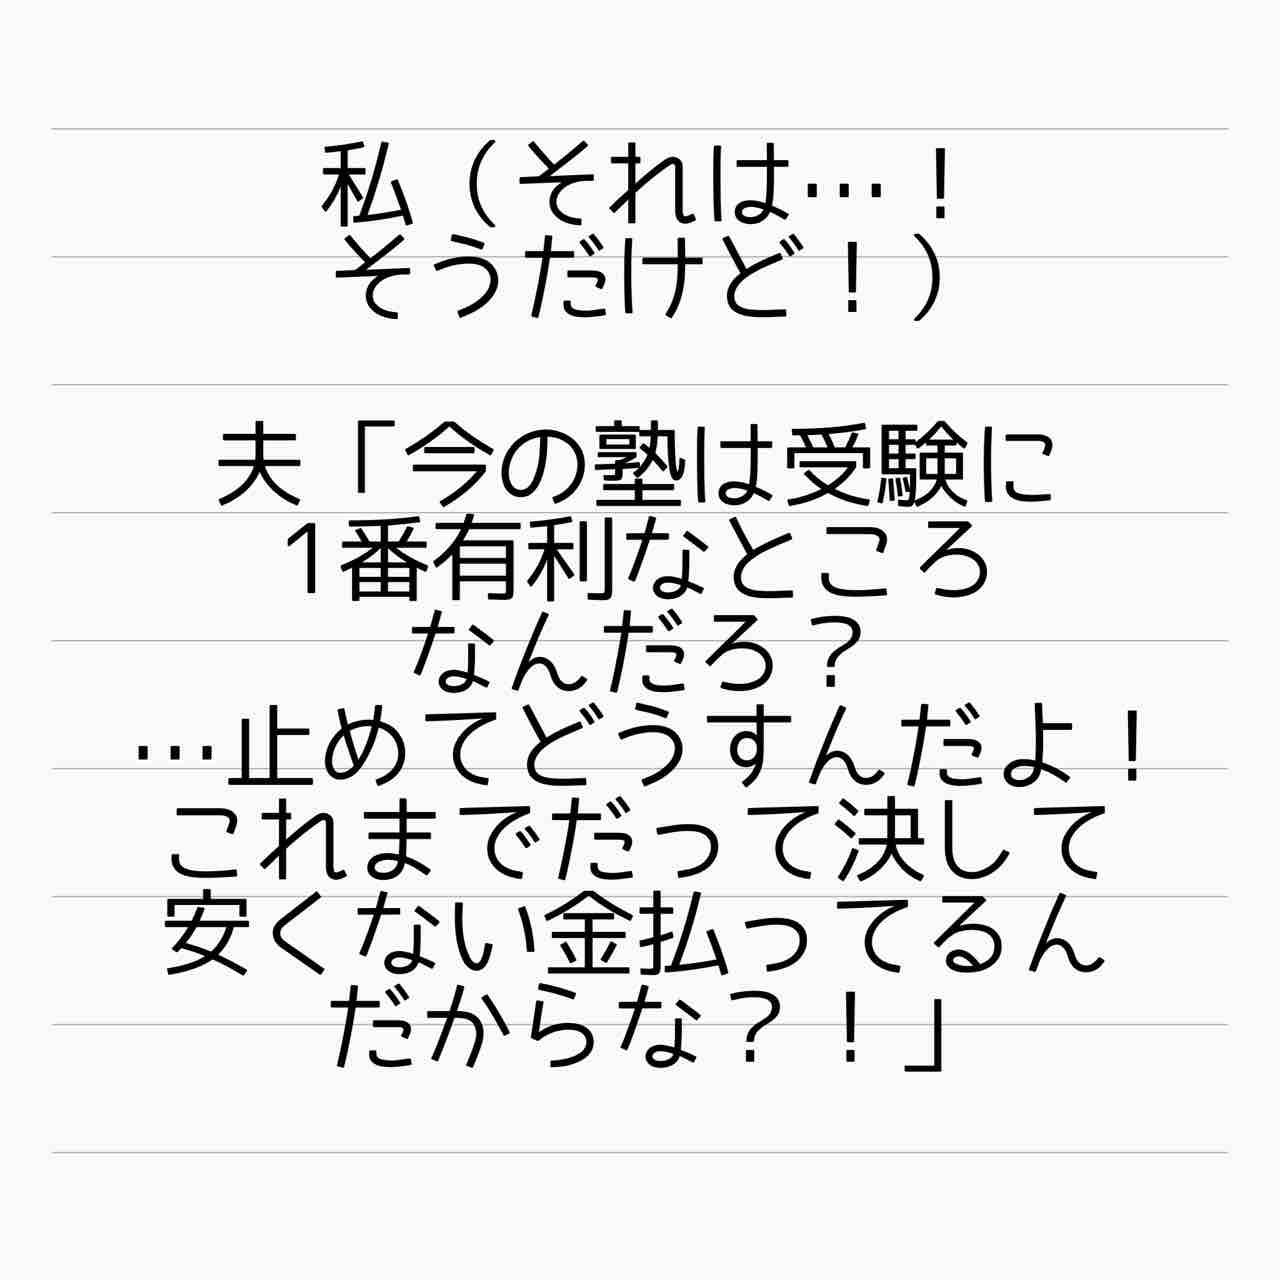 私（それは…！
そうだけど！）
夫「今の塾は受験に
1番有利なところ
なんだろ？
…止めてどうすんだよ！
これまでだって決して
安くない金払ってるん
だからな？！」